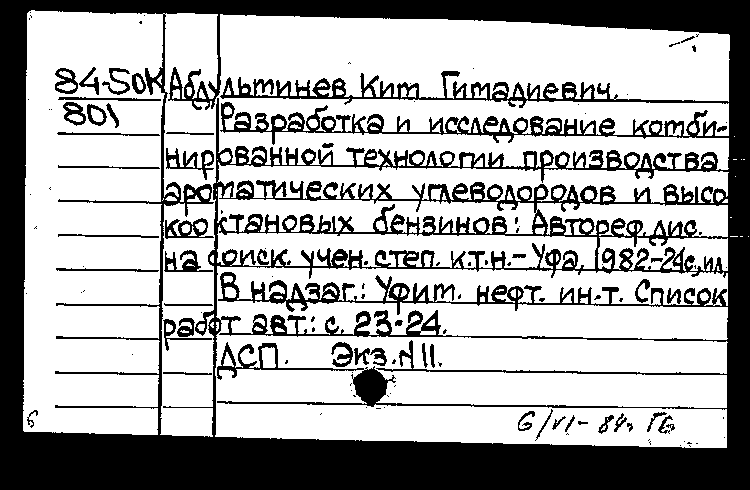 84-50К Абдультинев, Кит Гимадиевич.
801 Разработка и исследование комби-
нированной технологии производства
ароматических углеводородов и высо
кооктановых бензинов: Автореф. дис.
на соиск. учен. степ. к.т.н. - Уфа, 1982.-24с., ил,
В надзаг.: Уфим. нефт. ин-т. Список
работ авт.: с. 23-24.
ДСП. Экз. N 11.
6 6/VI- 84г ГБ